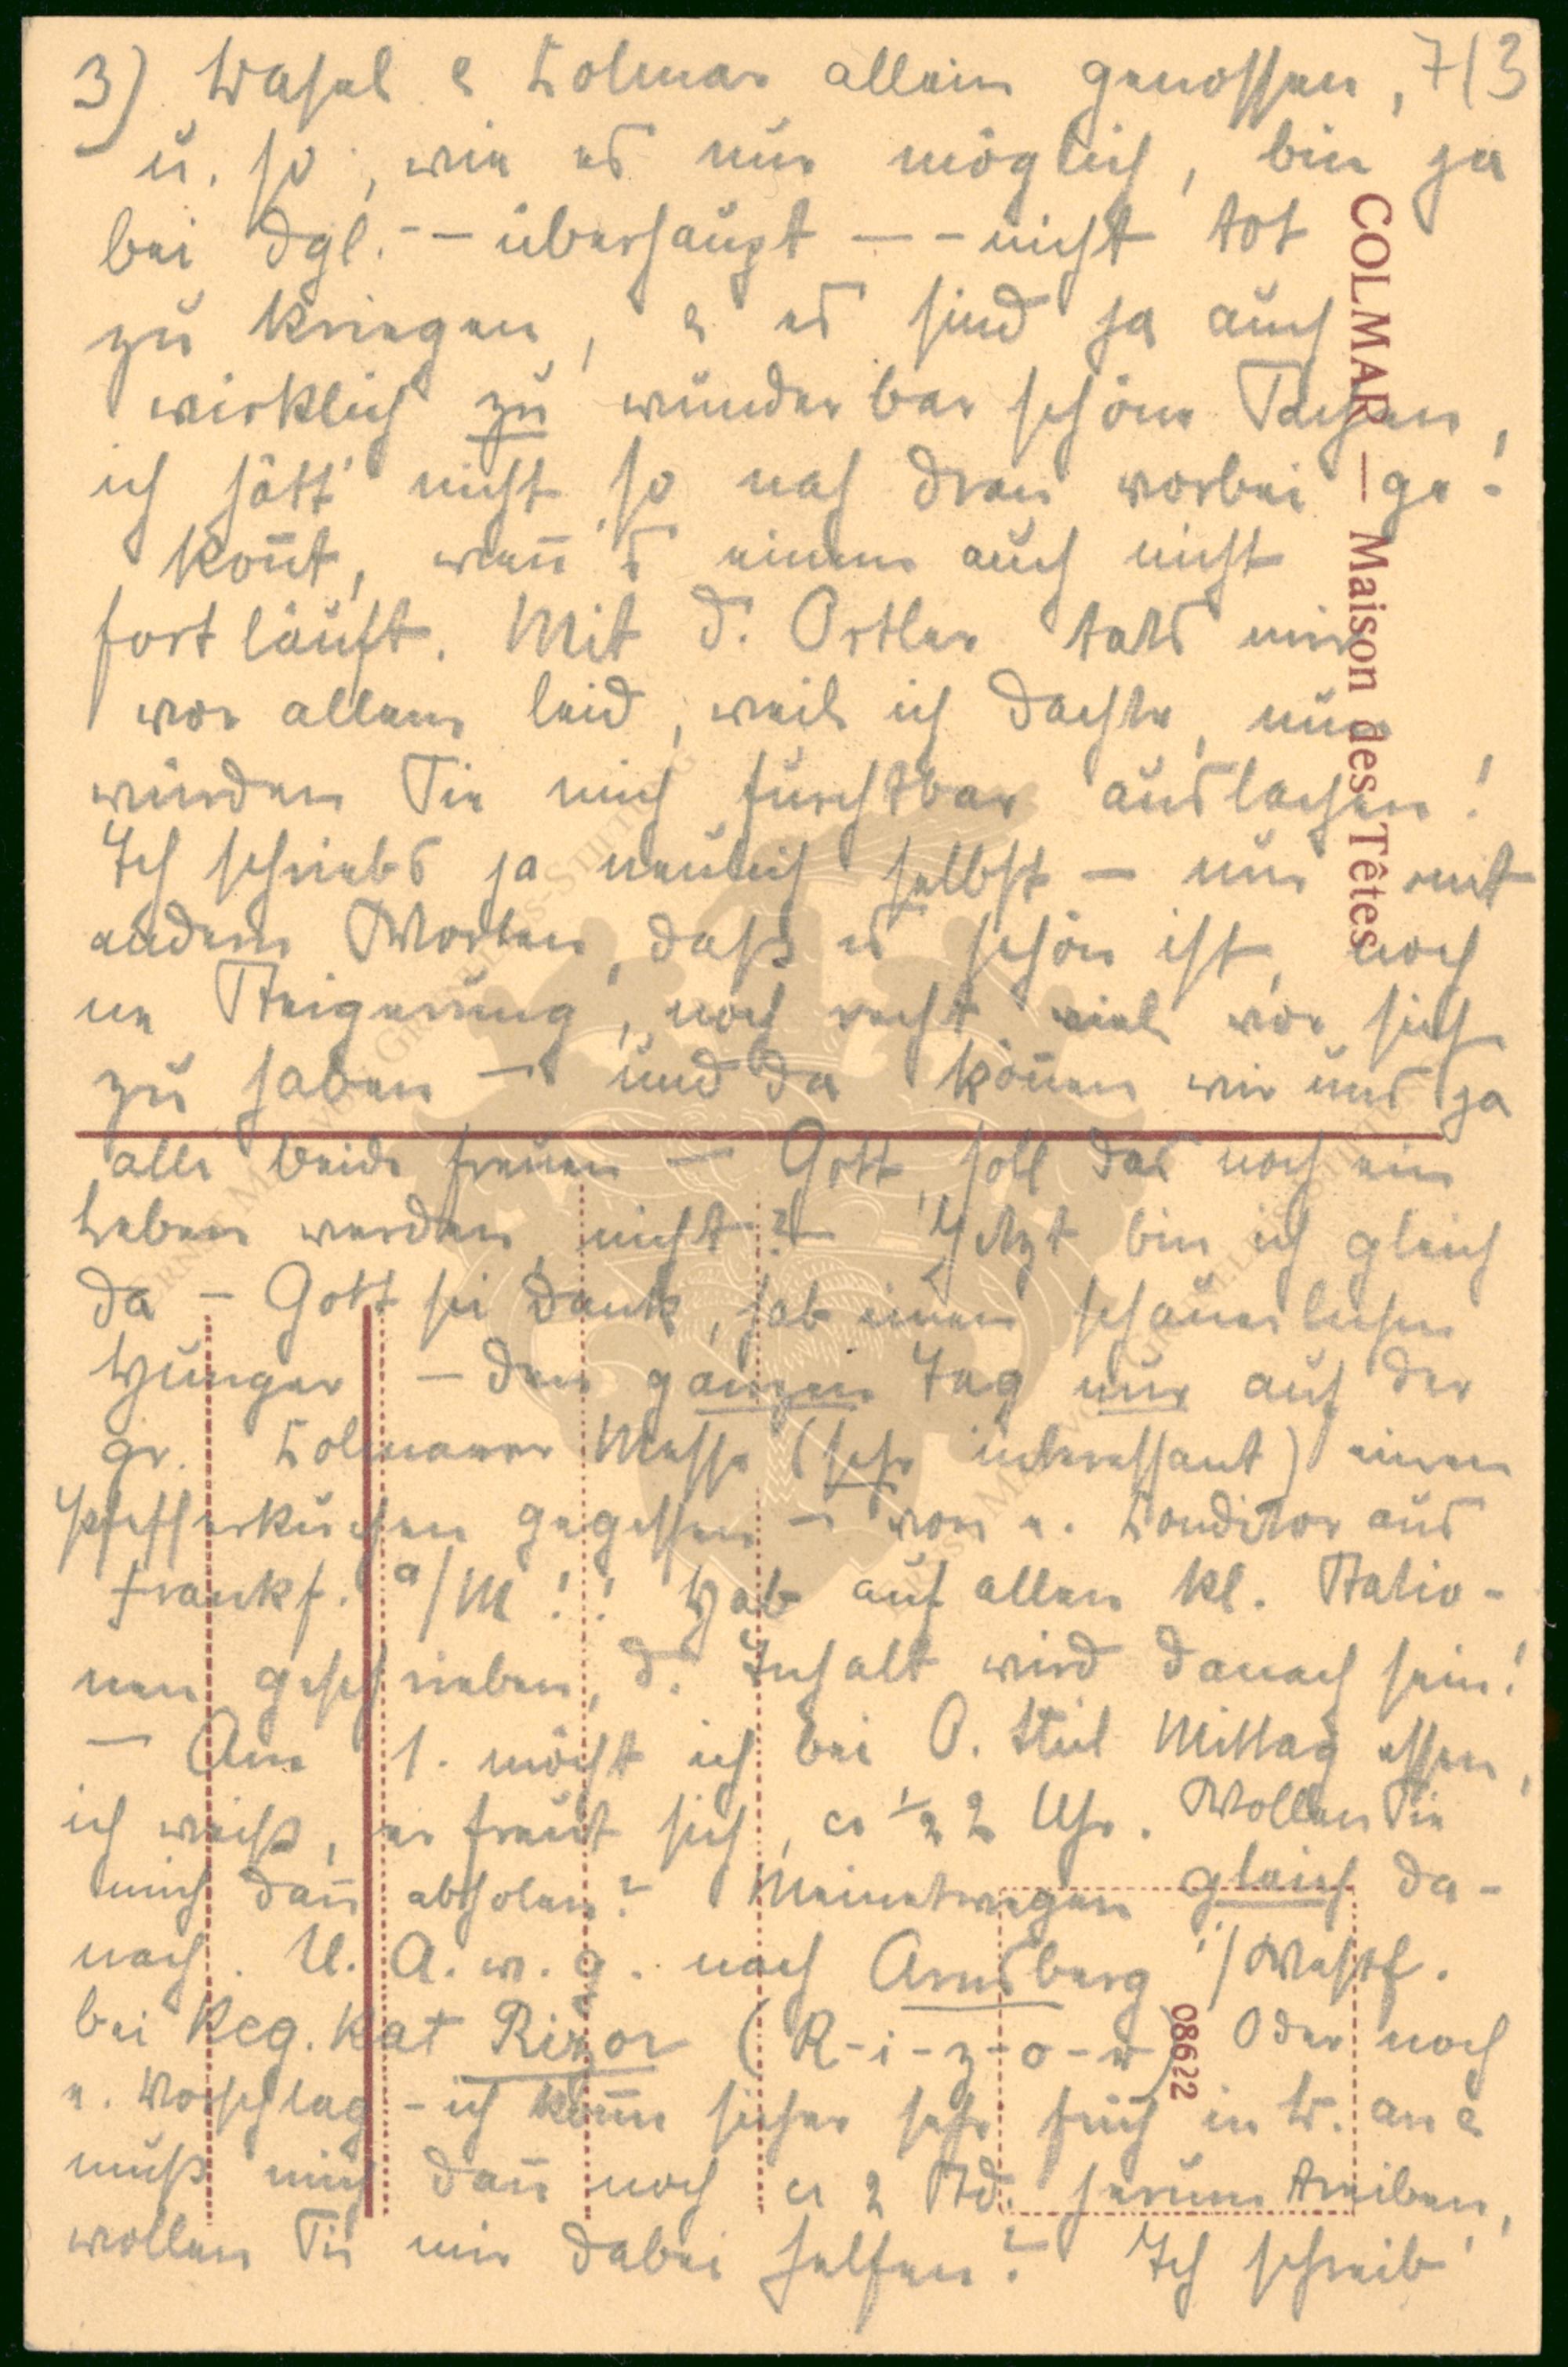 3) Basel & Colmar allein genossen, 713
u. so, wie es nur möglich, bin ja
bei dgl. -- überhaupt --- nicht tot
zu kriegen, & es sind ja auch
wirklich zu wunderbar schöne Sachen,
ich hätt' nicht so nah dran vorbei ge-
kon̄t, wen̄'s einem auch nicht
fortläuft. Mit d. Ortler tats mir
vor allem leid, weil ich dachte, nun
würden Sie mich furchtbar auslachen!
Ich schriebs ja neulich selbst – nur mit
andern Worten, daß es schön ist, noch
ne Steigerung, noch recht viel vor sich
zu haben – und da kön̄en wir uns ja
alle beide freuen – Gott, soll das noch ein
Leben werden, nicht? – Jetzt bin ich gleich
da – Gott sei Dank, hab einen schauerlichen
Hunger – den ganzen Tag nur auf der
gr. Colmarer Messe (sehr interessant) einen
Pfefferkuchen gegessen – von e. Conditor aus
Frankf. a/M!! Hab auf allen kl. Statio-
nen geschrieben, d. Inhalt wird danach sein!
– Am 1. möcht ich bei O. Mittag essen,
ich weiß, er freut sich, ca ½ 2 Uhr. Wollen Sie
mich dan̄ abholen? Meinetwegen gleich da-
nach. U. A. w. g. nach Arnsberg i/Westf.
bei Reg. Rat Rizor (R-i-z-o-r) Oder noch
e. Vorschlag – ich kom̄e sicher sehr früh in B. an &
muß mich dan̄ noch ca 2 Std. herumtreiben,
wollen Sie mir dabei helfen? Ich schreib'
COLMAR — Maison des Têtes
08622